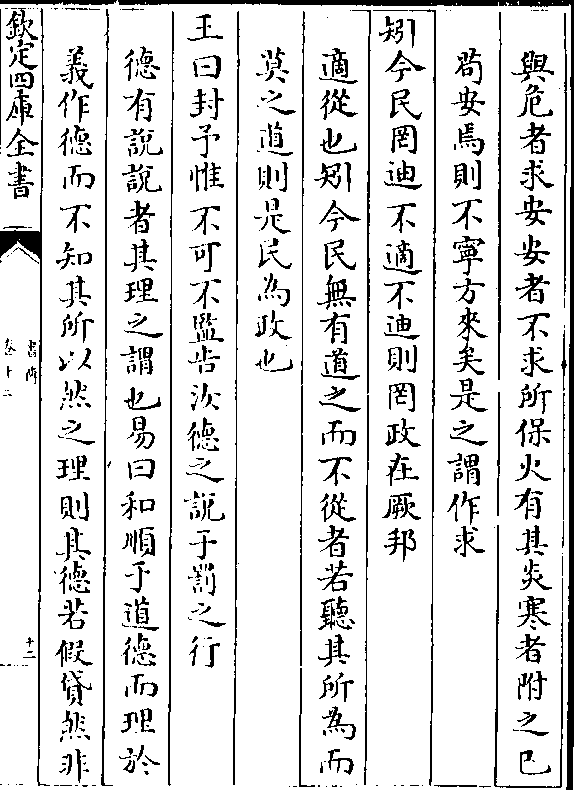 與危者求安安者不求所保火有其炎寒者附之已
苟安焉則不寧方來矣是之謂作求
矧今民罔迪不適不迪則罔政在厥邦
適從也矧今民無有道之而不從者若聽其所為而
莫之道則是民為政也
王曰封予惟不可不監告汝德之說于罰之行
德有說說者其理之謂也易曰和順于道德而理於
義作德而不知其所以然之理則其德若假貸然非
欽定四庫全書
書傳
卷十二
十二